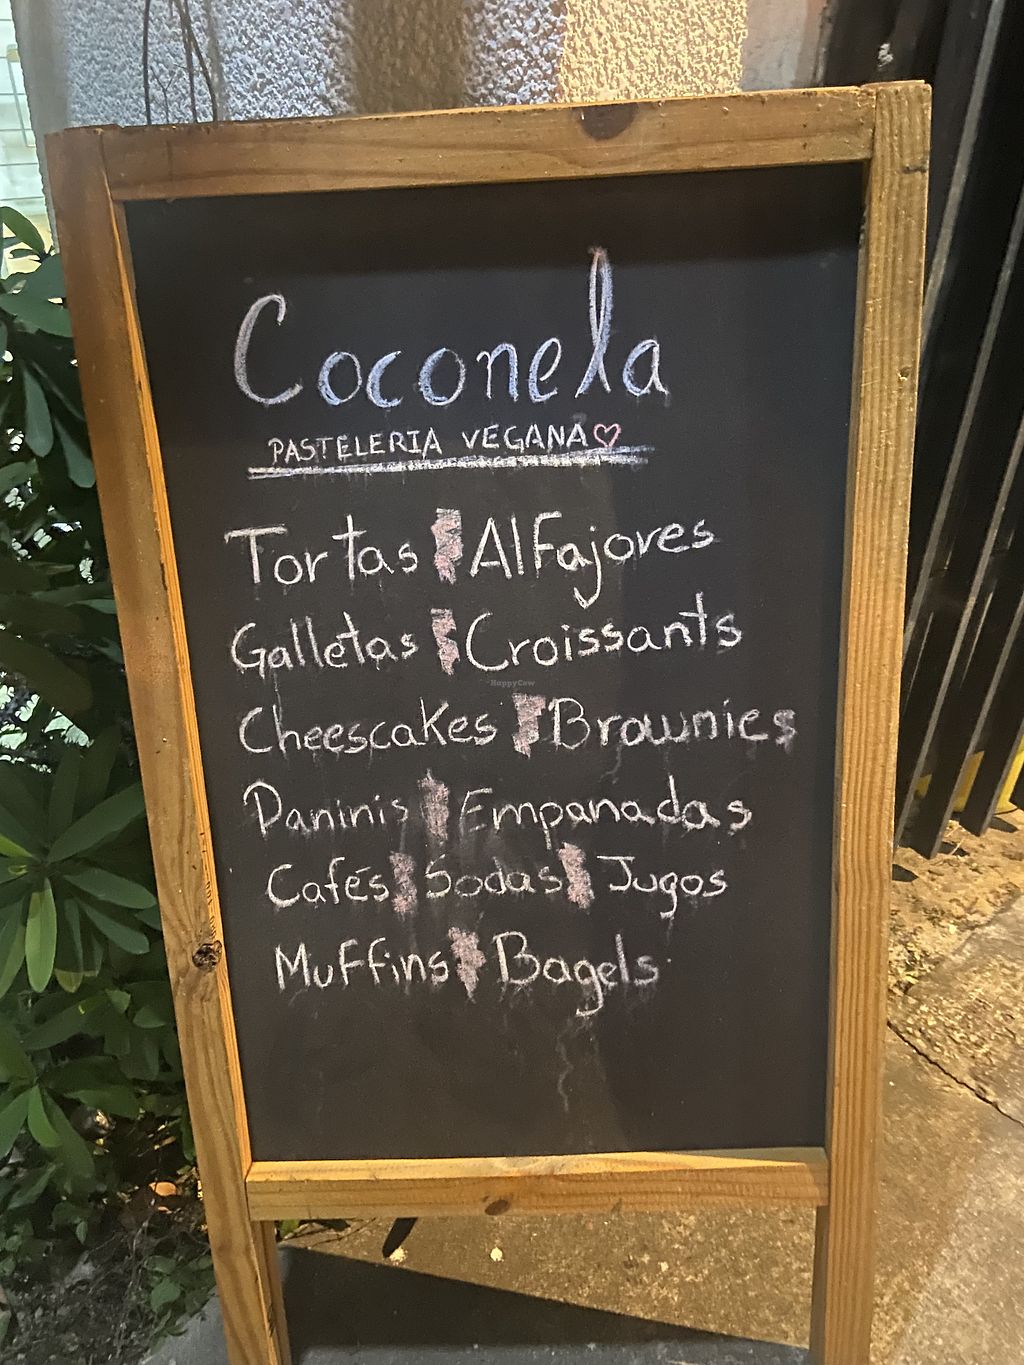 Coconela
PASTELERIA VEGANA
Tortas Alfajores
Galletas Croissants
HappyCow
Cheescakes Brownies
Paninis Empanadas
Cafés Sodas Jugos
Muffins Bagels